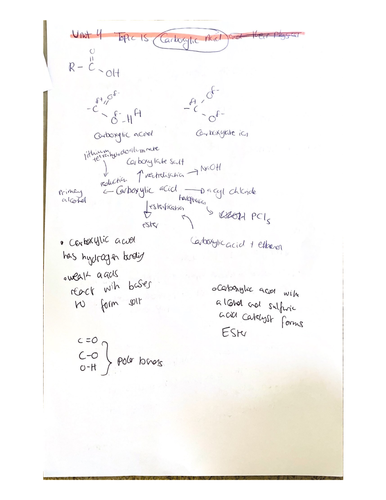 Unit 4 Topic 15 Carboxylic Acid
O
R - C
OH
Carboxylic acid
Carboxylate ion
lithium
Carboxylate salt
reduction
neutralisation
NaOH
primary
alcohol
Carboxylic acid
acyl chloride
esterification
PCl5
ester
Carboxylic acid +
• Carboxylic acid
has hydrogen
• weak acids
react with bases
to form salt
• Carboxylic acid with
alcohol and sulfuric
acid catalyst forms
Ester
C=O
C-O
O-H
polar bonds